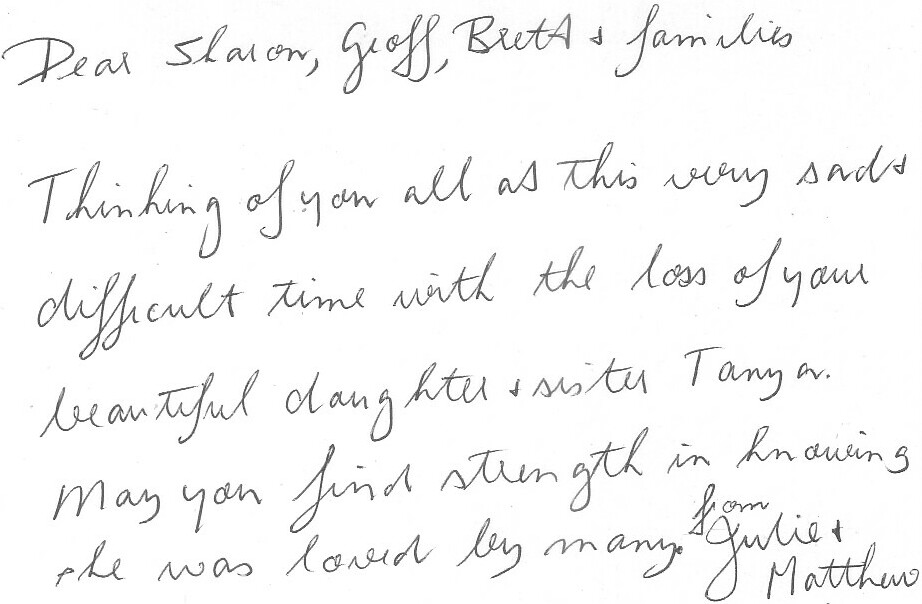 Dear Sharon, Geoff, Brett + families
Thinking of you all at this very sad +
difficult time with the loss of your
beautiful daughter + sister Tanya.
May you find strength in knowing
she was loved by many. from Julie +
Matthew